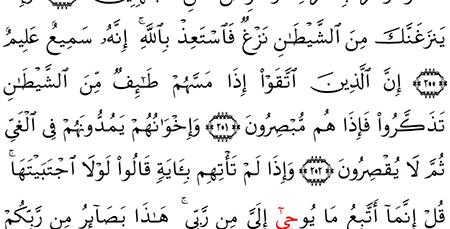 يَنزَغَنَّكَ مِنَ ٱلشَّيْطَٰنِ نَزْغٌ فَٱسْتَعِذْ بِٱللَّهِ ۚ إِنَّهُۥ سَمِيعٌ عَلِيمٌ
۝٢٠٠ إِنَّ ٱلَّذِينَ ٱتَّقَوْا۟ إِذَا مَسَّهُمْ طَٰٓئِفٌ مِّنَ ٱلشَّيْطَٰنِ
تَذَكَّرُوا۟ فَإِذَا هُم مُّبْصِرُونَ ۝٢٠١ وَإِخْوَٰنُهُمْ يَمُدُّونَهُمْ فِى ٱلْغَىِّ
ثُمَّ لَا يُقْصِرُونَ ۝٢٠٢ وَإِذَا لَمْ تَأْتِهِم بِـَٔايَةٍ قَالُوا۟ لَوْلَا ٱجْتَبَيْتَهَا ۚ
قُلْ إِنَّمَآ أَتَّبِعُ مَا يُوحَىٰٓ إِلَىَّ مِن رَّبِّى ۚ هَٰذَا بَصَآئِرُ مِن رَّبِّكُمْ